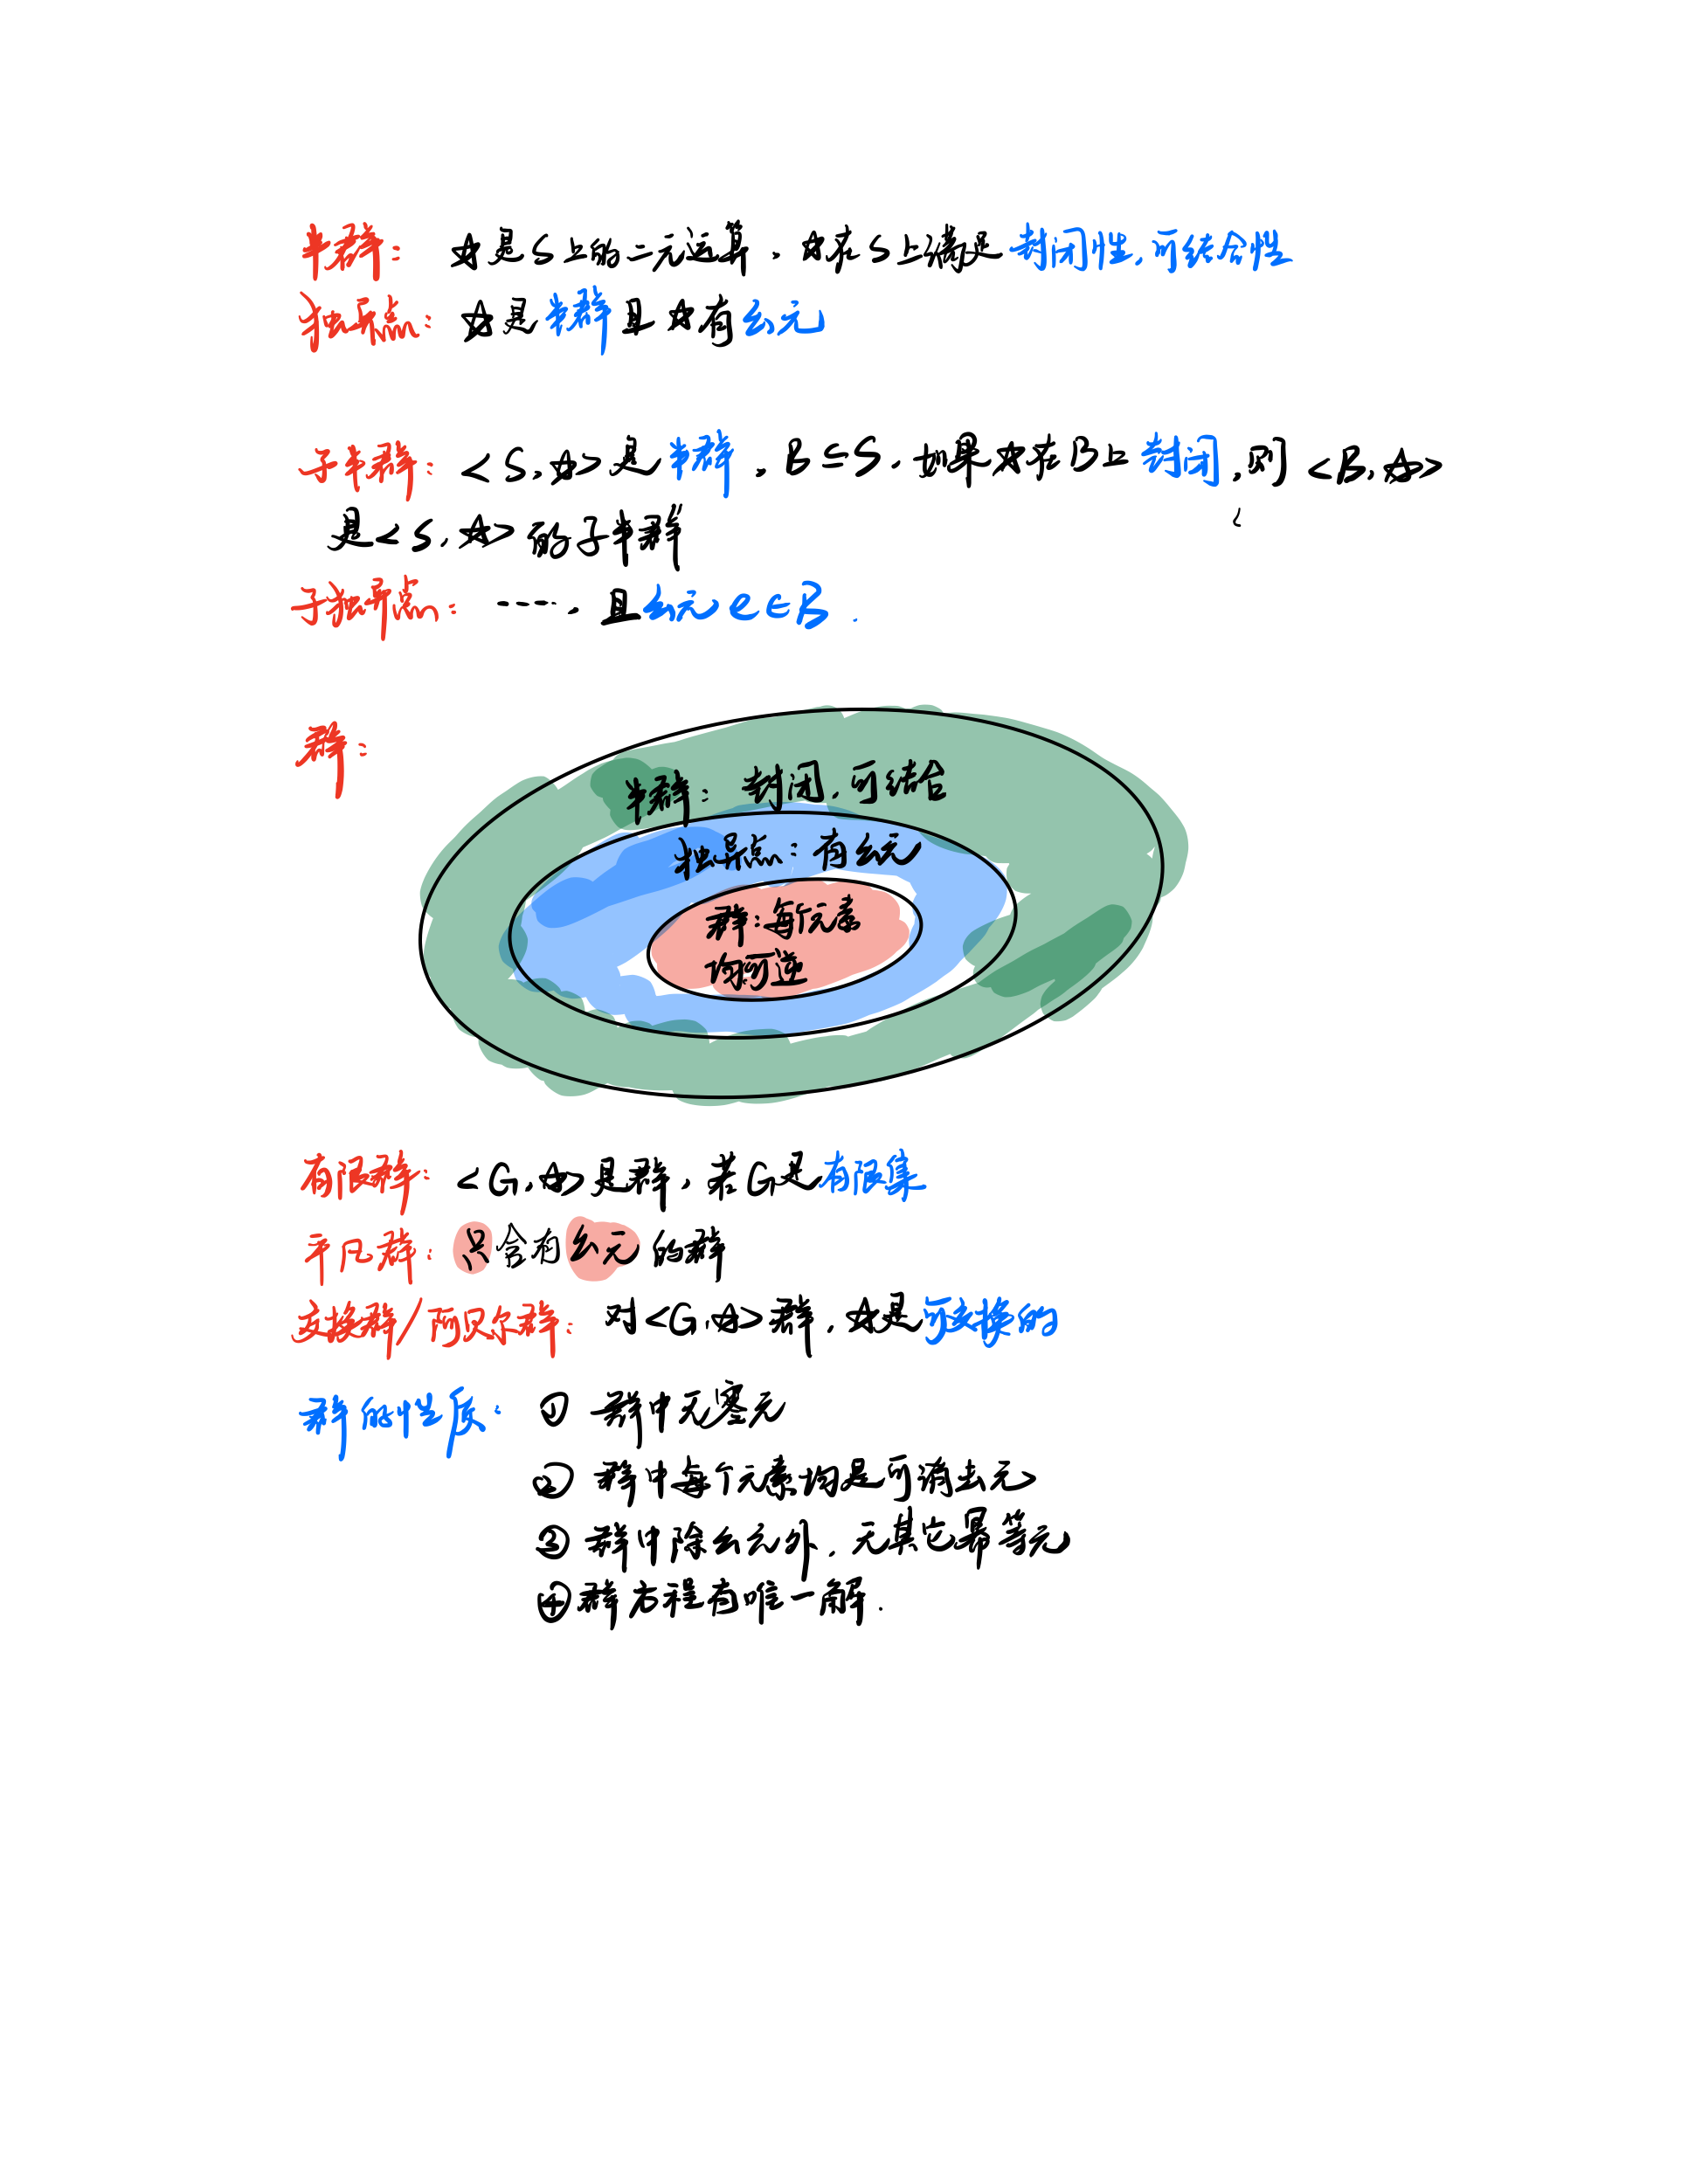 半群： ☆是S上的二元运算，☆在S上满足封闭性，可结合性
独异点：☆是半群且☆有幺元
子半群：<S,☆>是半群，B⊆S，如果☆在B上封闭，则<B,☆>
是<S,☆>的子半群
子独异点：……，且幺元e∈B.
群：
半群：封闭，可结合
独异点：有幺元
群：每个元素
均可逆
有限群：<G,☆>是群，若G是有限集
平凡群：只含有幺元的群
交换群/阿贝尔群：对<G,☆>群，☆是可交换的
群的性质：① 群中无零元
② 群中每个元素均是可消去元
③ 群中除幺元外，无其它幂等元
④群方程有唯一解.